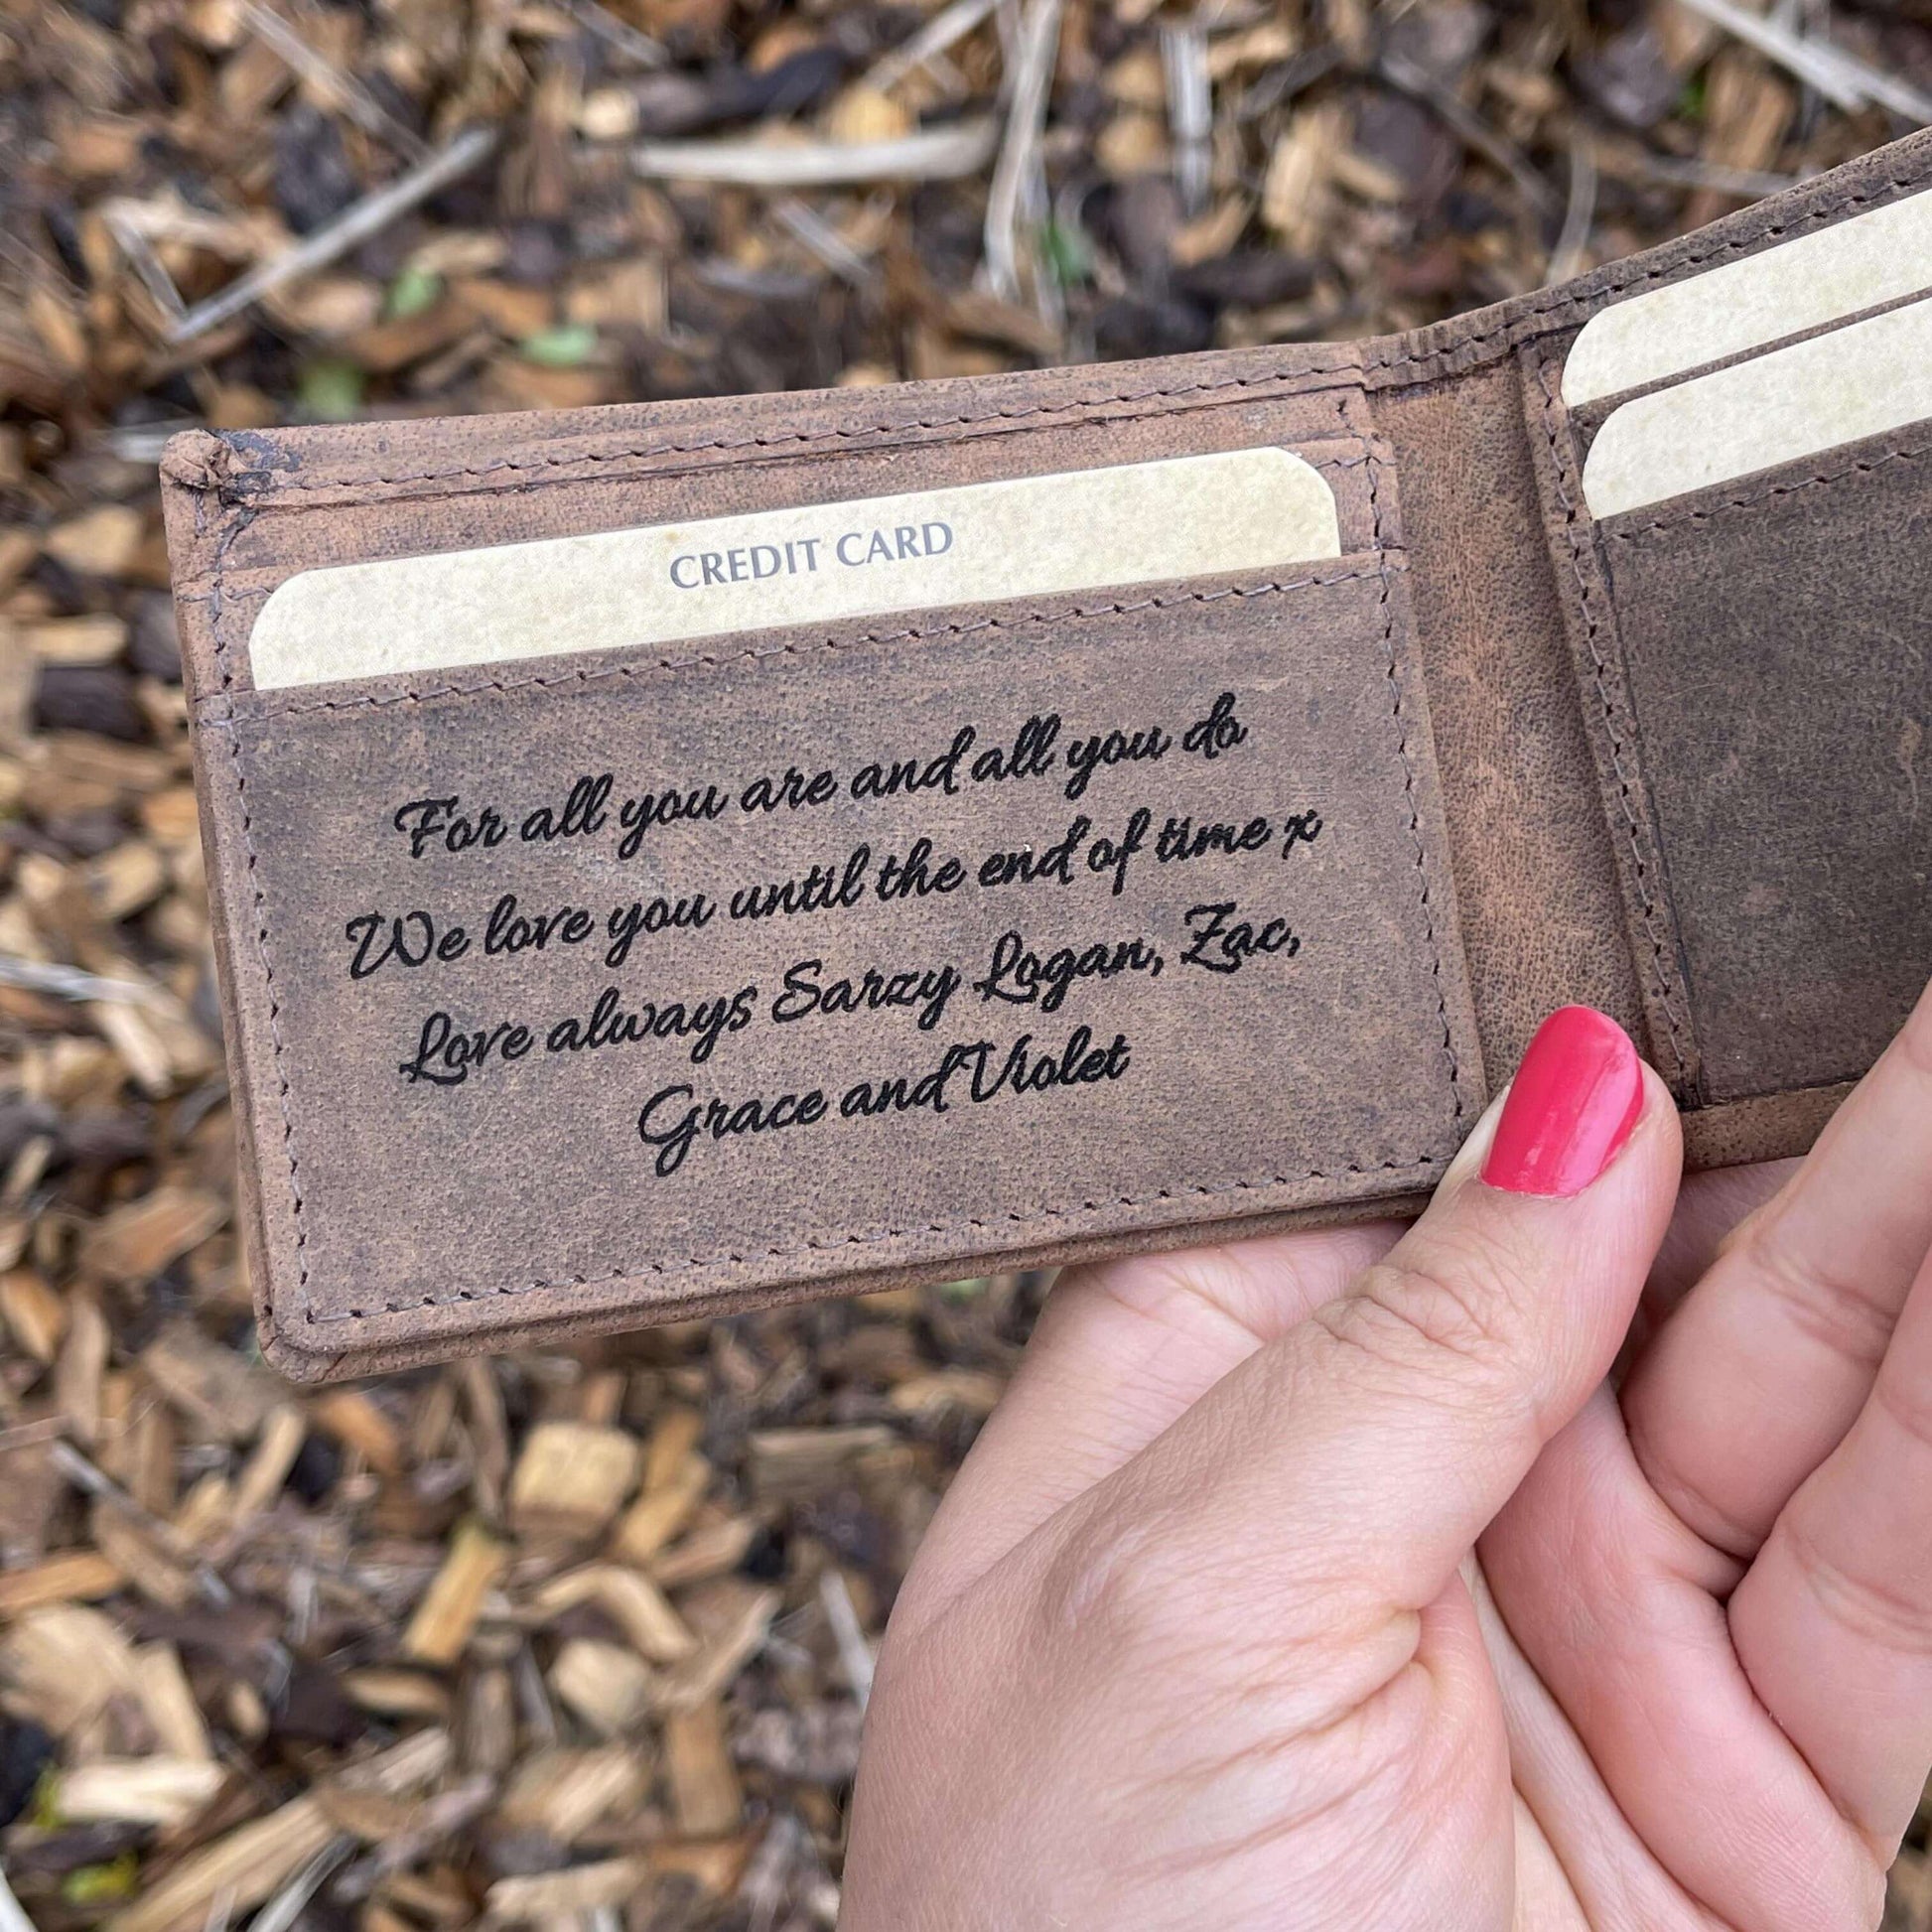 CREDIT CARD
For all you are and all you do
We love you until the end of time x
Love always Sarzy Logan, Zac,
Grace and Violet